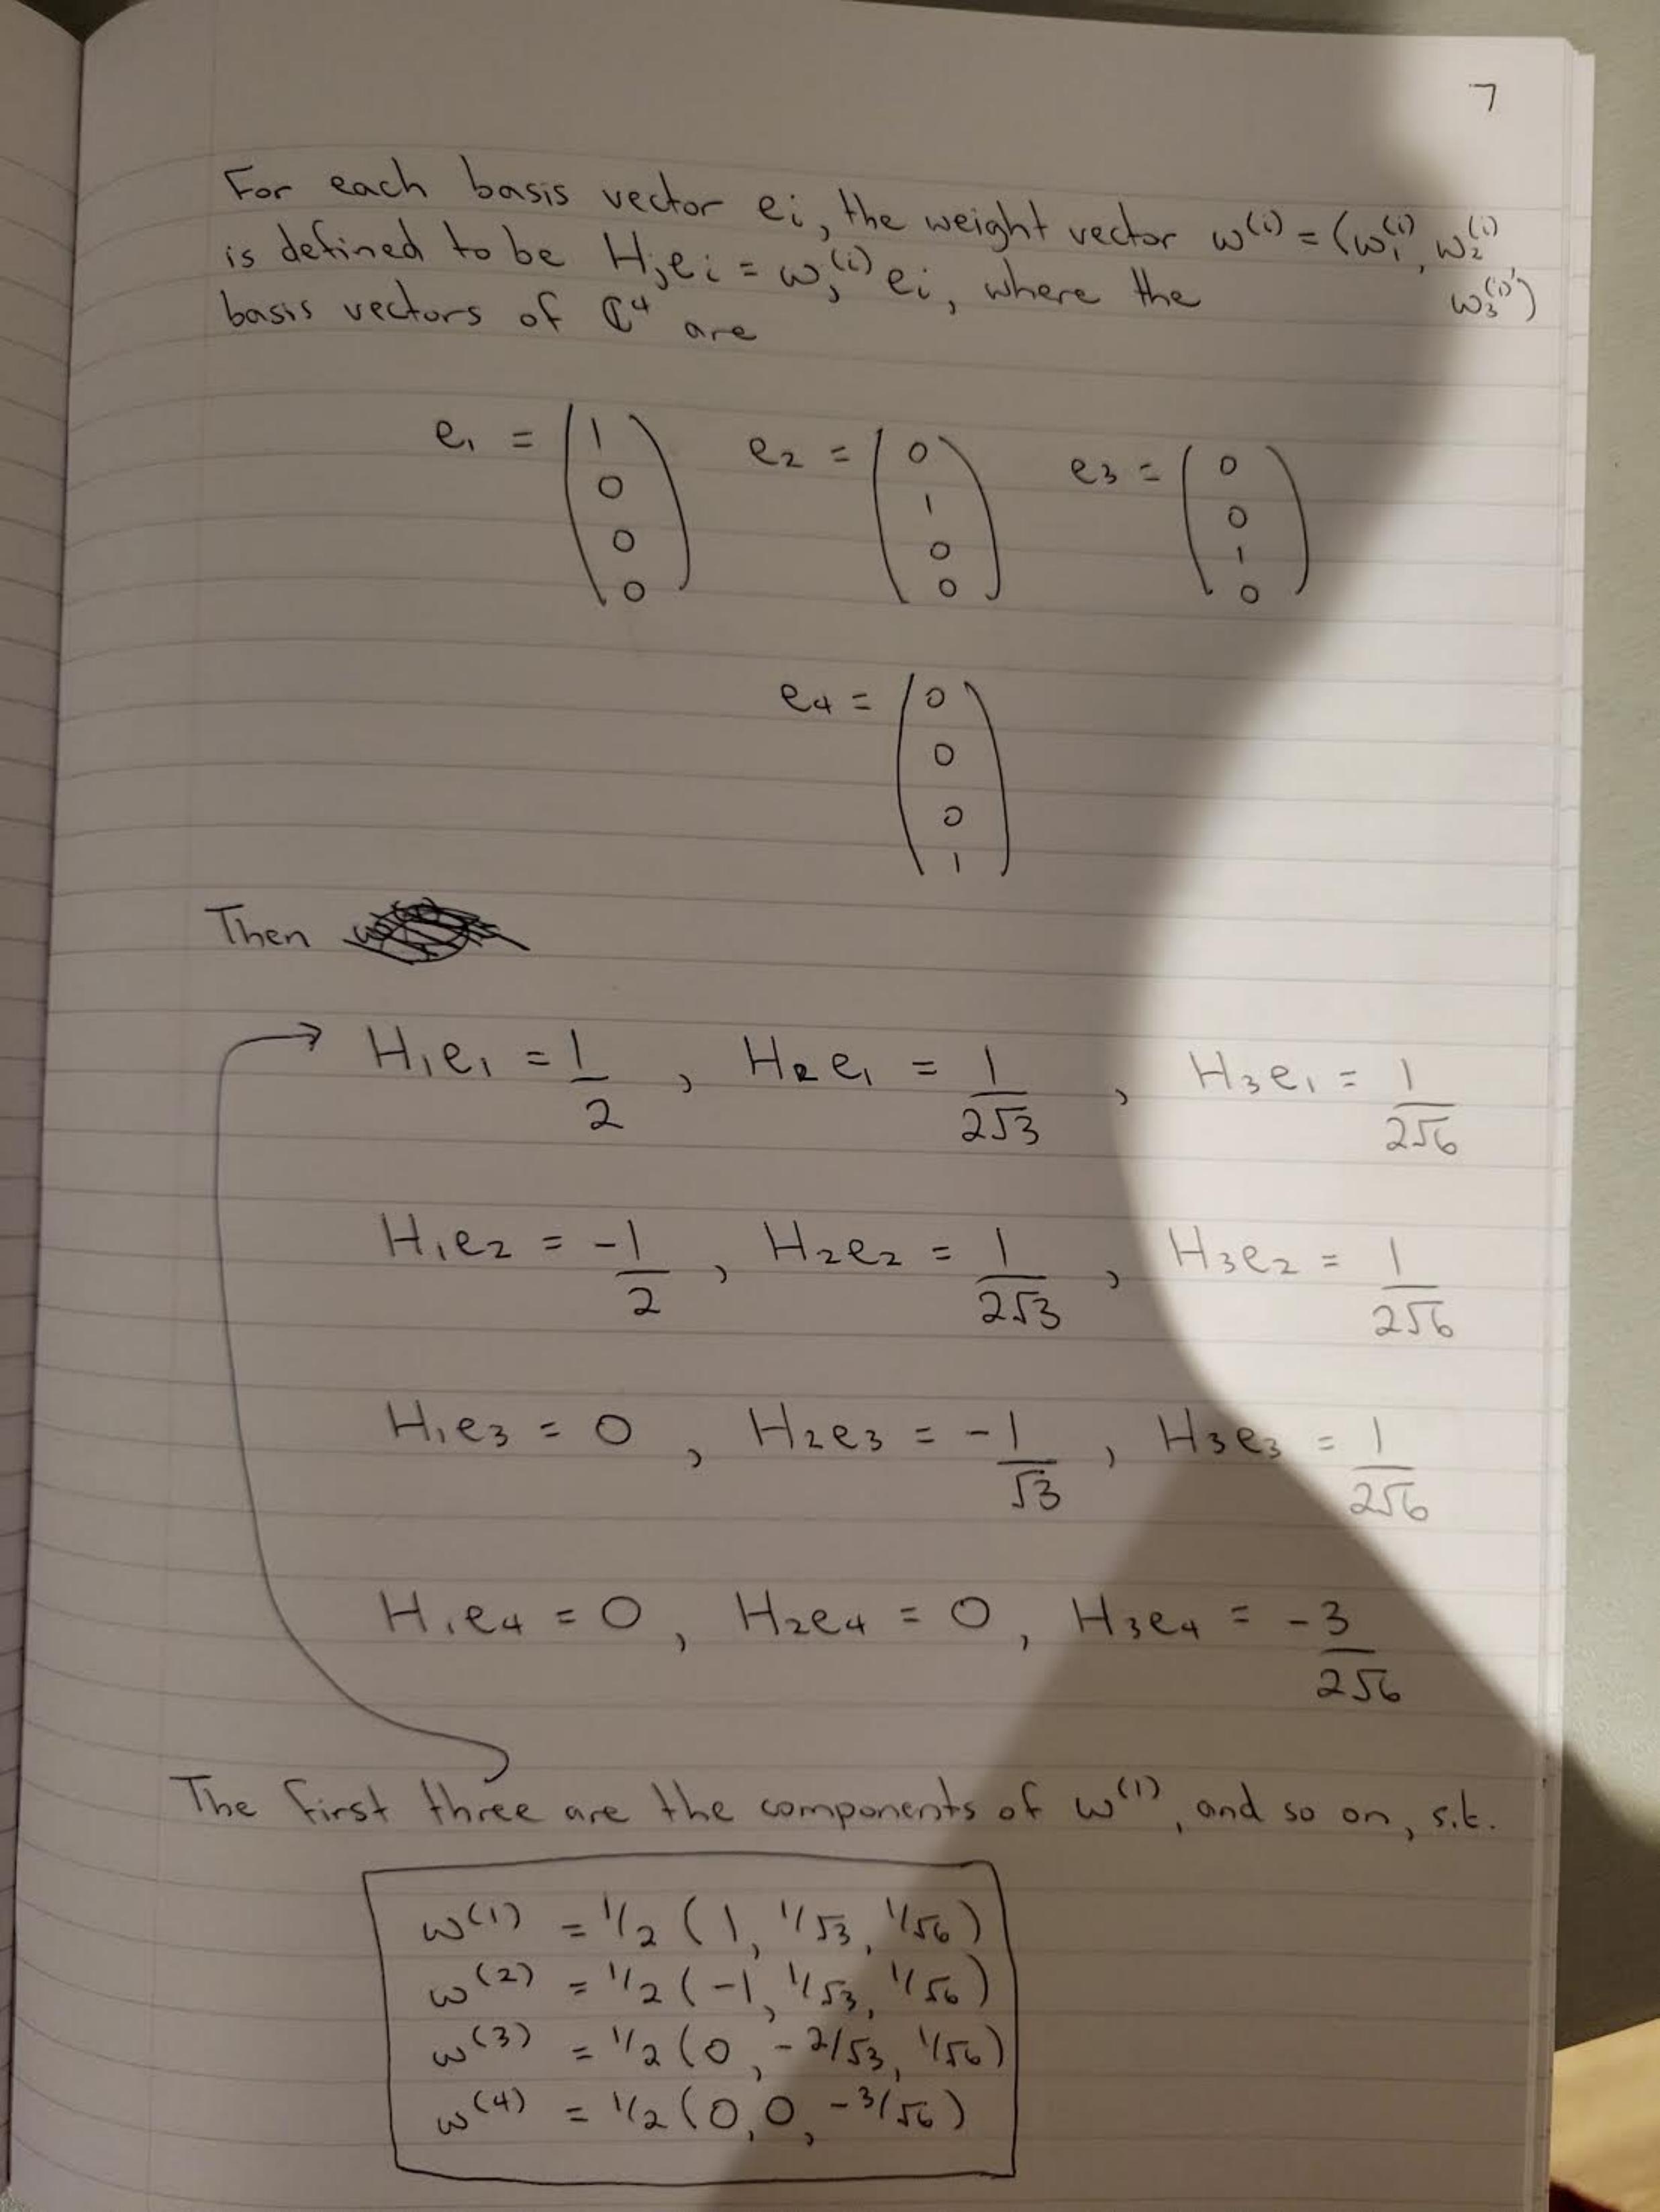 7
For each basis vector eᵢ, the weight vector ω⁽ⁱ⁾ = (ω₁⁽ⁱ⁾, ω₂⁽ⁱ⁾,
is defined to be Hⱼeᵢ = ωⱼ⁽ⁱ⁾ eᵢ, where the ω₃⁽ⁱ⁾)
basis vectors of ℂ⁴ are
e₁ = (1 0 0 0) e₂ = (0 1 0 0) e₃ = (0 0 1 0)
e₄ = (0 0 0 1)
Then
→ H₁e₁ = 1/2, H₂e₁ = 1/2√3, H₃e₁ = 1/2√6
H₁e₂ = -1/2, H₂e₂ = 1/2√3, H₃e₂ = 1/2√6
H₁e₃ = 0, H₂e₃ = -1/√3, H₃e₃ = 1/2√6
H₁e₄ = 0, H₂e₄ = 0, H₃e₄ = -3/2√6
The first three are the components of ω⁽¹⁾, and so on, s.t.
ω⁽¹⁾ = 1/2 (1, 1/√3, 1/√6)
ω⁽²⁾ = 1/2 (-1, 1/√3, 1/√6)
ω⁽³⁾ = 1/2 (0, -2/√3, 1/√6)
ω⁽⁴⁾ = 1/2 (0, 0, -3/√6)